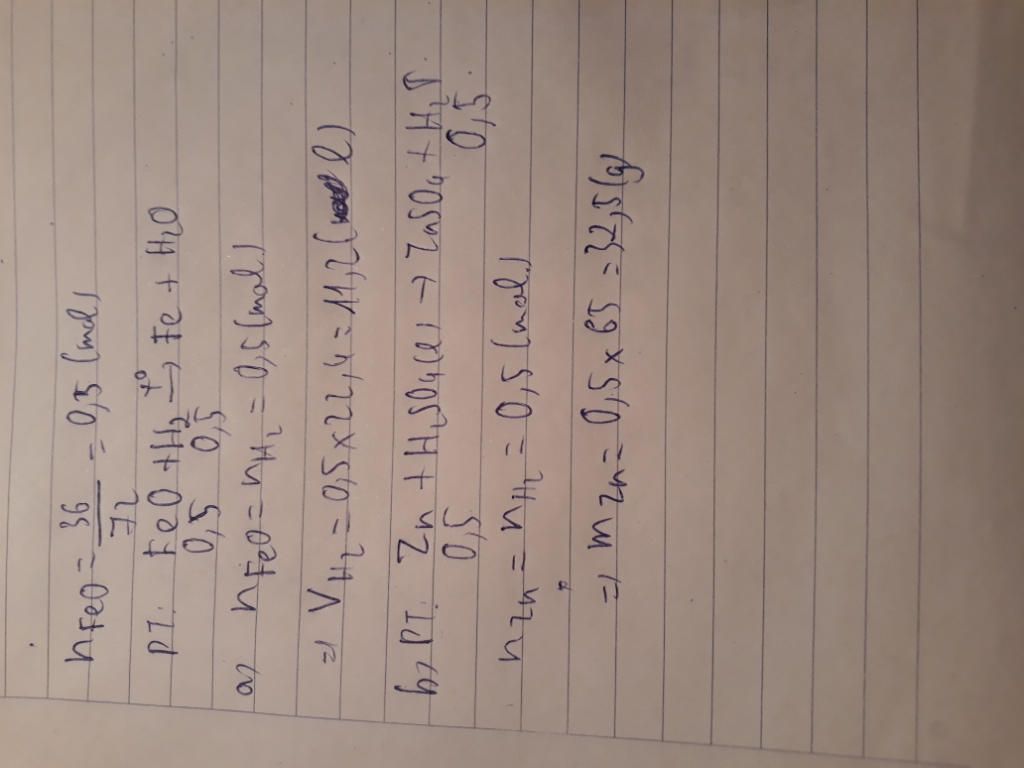 nFeO = 36/72 = 0,5 (mol)
PT: FeO + H2 t°→ Fe + H2O
0,5 0,5
a) nFeO = nH2 = 0,5 (mol)
=> VH2 = 0,5 x 22,4 = 11,2 (l)
b) PT: Zn + H2SO4(l) → ZnSO4 + H2↑.
0,5 0,5
nZn = nH2 = 0,5 (mol)
=> mZn = 0,5 x 65 = 32,5 (g)